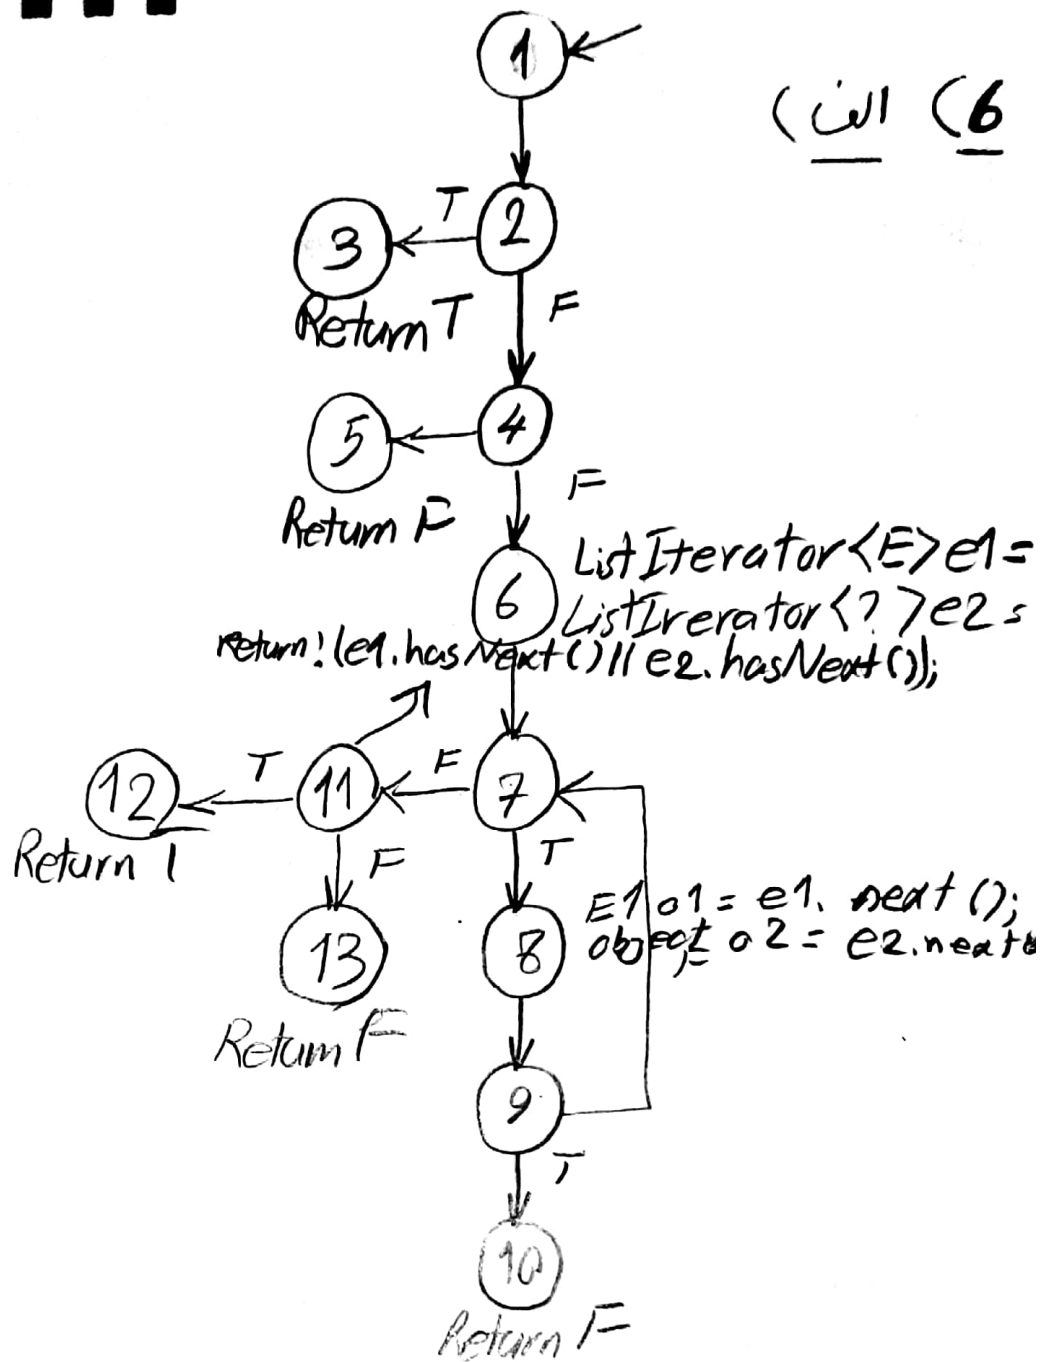 6) الف)
1
T
2
3
Return T
F
4
5
Return F
F
6
ListIterator<E>e1=
ListIrerator<?>e2=
return!(e1.hasNext()||e2.hasNext());
7
F
11
T
12
Return
T
F
8
E1 o1 = e1. next ();
object o2 = e2.next
F
13
Return F
9
T
10
Return F